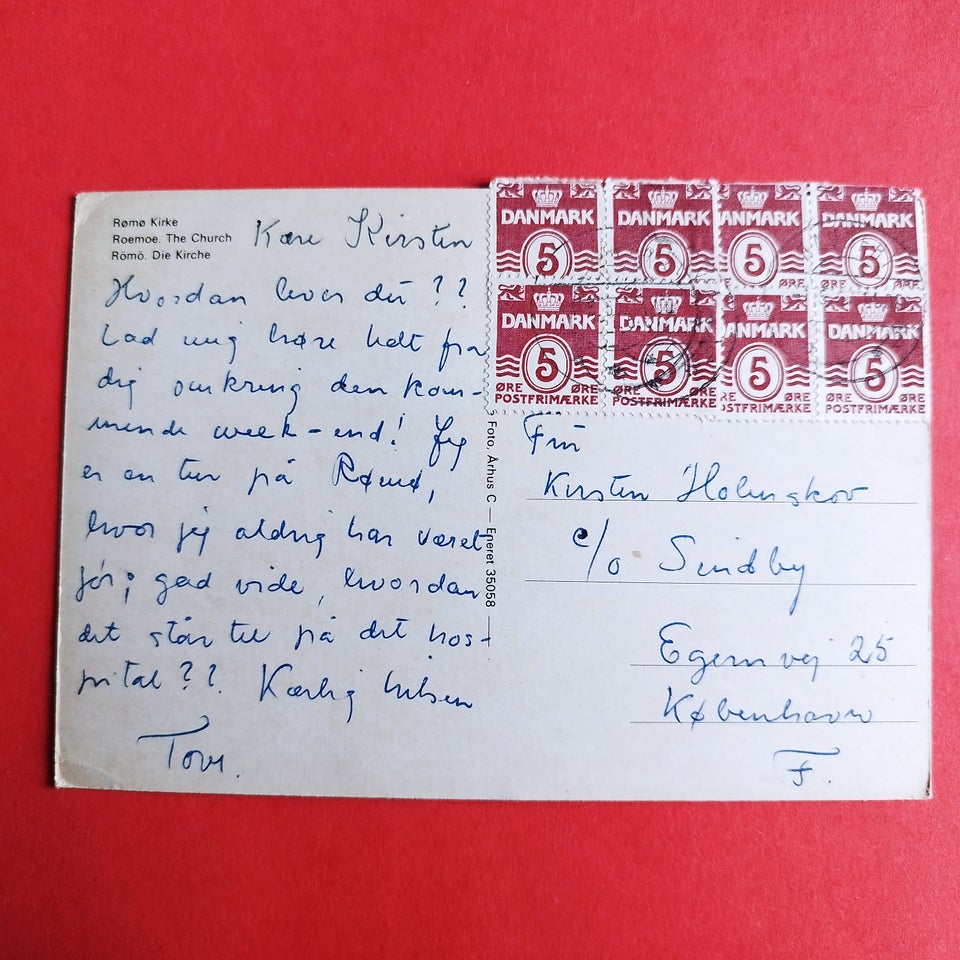 Rømø Kirke
Roemoe. The Church
Römö. Die Kirche
Kære Kirsten
Hvordan lever du??
Lad mig høre lidt fra
dig omkring den kom-
mende week-end! Jeg
er en tur på Rømø,
hvor jeg aldrig har været
før; gad vide, hvordan
det står til på dit hos-
pital?? Kærlig hilsen
Tove.
Foto, Århus C — Eneret 35058
DANMARK DANMARK DANMARK DANMARK
5 5 5 5
ØRE ØRE
DANMARK DANMARK DANMARK DANMARK
5 5 5 5
ØRE ØRE ØRE ØRE ØRE
POSTFRIMÆRKE POSTFRIMÆRKE OSTFRIMÆRKE POSTFRIMÆRKE
Kirsten Holmskov
c/o Sindby
Egernvej 25
København
F.